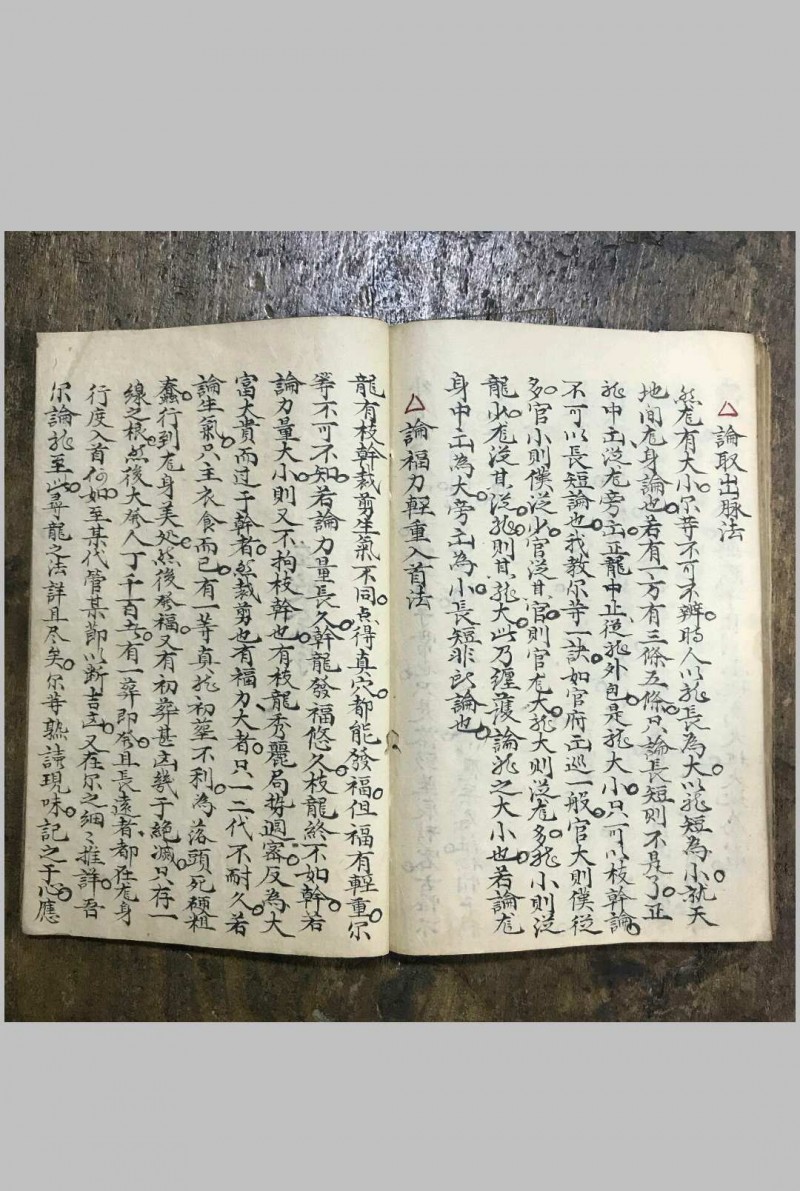 論取出脉法
然龙有大小尔等不可不辨時人以龙長為大以龙短為小就天
地间龙身論也若有一方有三條五條只論長短則不是了正
龙中出从龙旁出正龍中正從龙外包是龙大小只可以枝幹論
不可以長短論也我教尔等一訣如官府出巡一般官大則僕從
多官小則僕从少官从甚官則官大龙大則从龙多龙小則从
龍少龙从甚从龙則甚龙大此乃纏護論龙之大小也若論龙
身中出為大旁出為小長短非所論也
論福力輕重入首法
龍有枝幹裁剪生氣不同点得真穴都能發福但福有輕重尔
等不可不知若論力量長久幹龍發福悠久枝龍終不如幹若
論力量大小則又不拘枝幹也有枝龍秀麗局势週密反為大
富大貴而过于幹者然裁剪也有福力大者只一二代不耐久若
論生氣只主衣食而已有一等真龙初塟不利為落頭死硬粗
蠢行到龙身美处然後發福又有初葬甚凶幾于絕滅只存一
線之根然後大發人丁千百者有一葬即發且長遠者都在龙身
行度入首何如至某代管某節以断吉凶又在尔之細々推詳吾
尔論龙至此尋龍之法詳且尽矣尔等熟讀現味記之于心應